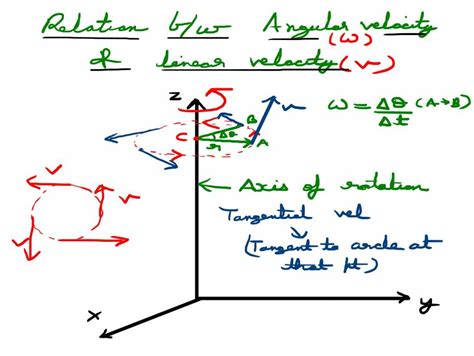 Relation b/w Angular velocity
(ω)
& linear velocity (v)
Z
v
ω = Δθ (A→B)
Δt
B
C
Δθ
r
A
v
v
v
Axis of rotation
Tangential vel
(Tangent to circle at
that pt)
x
y